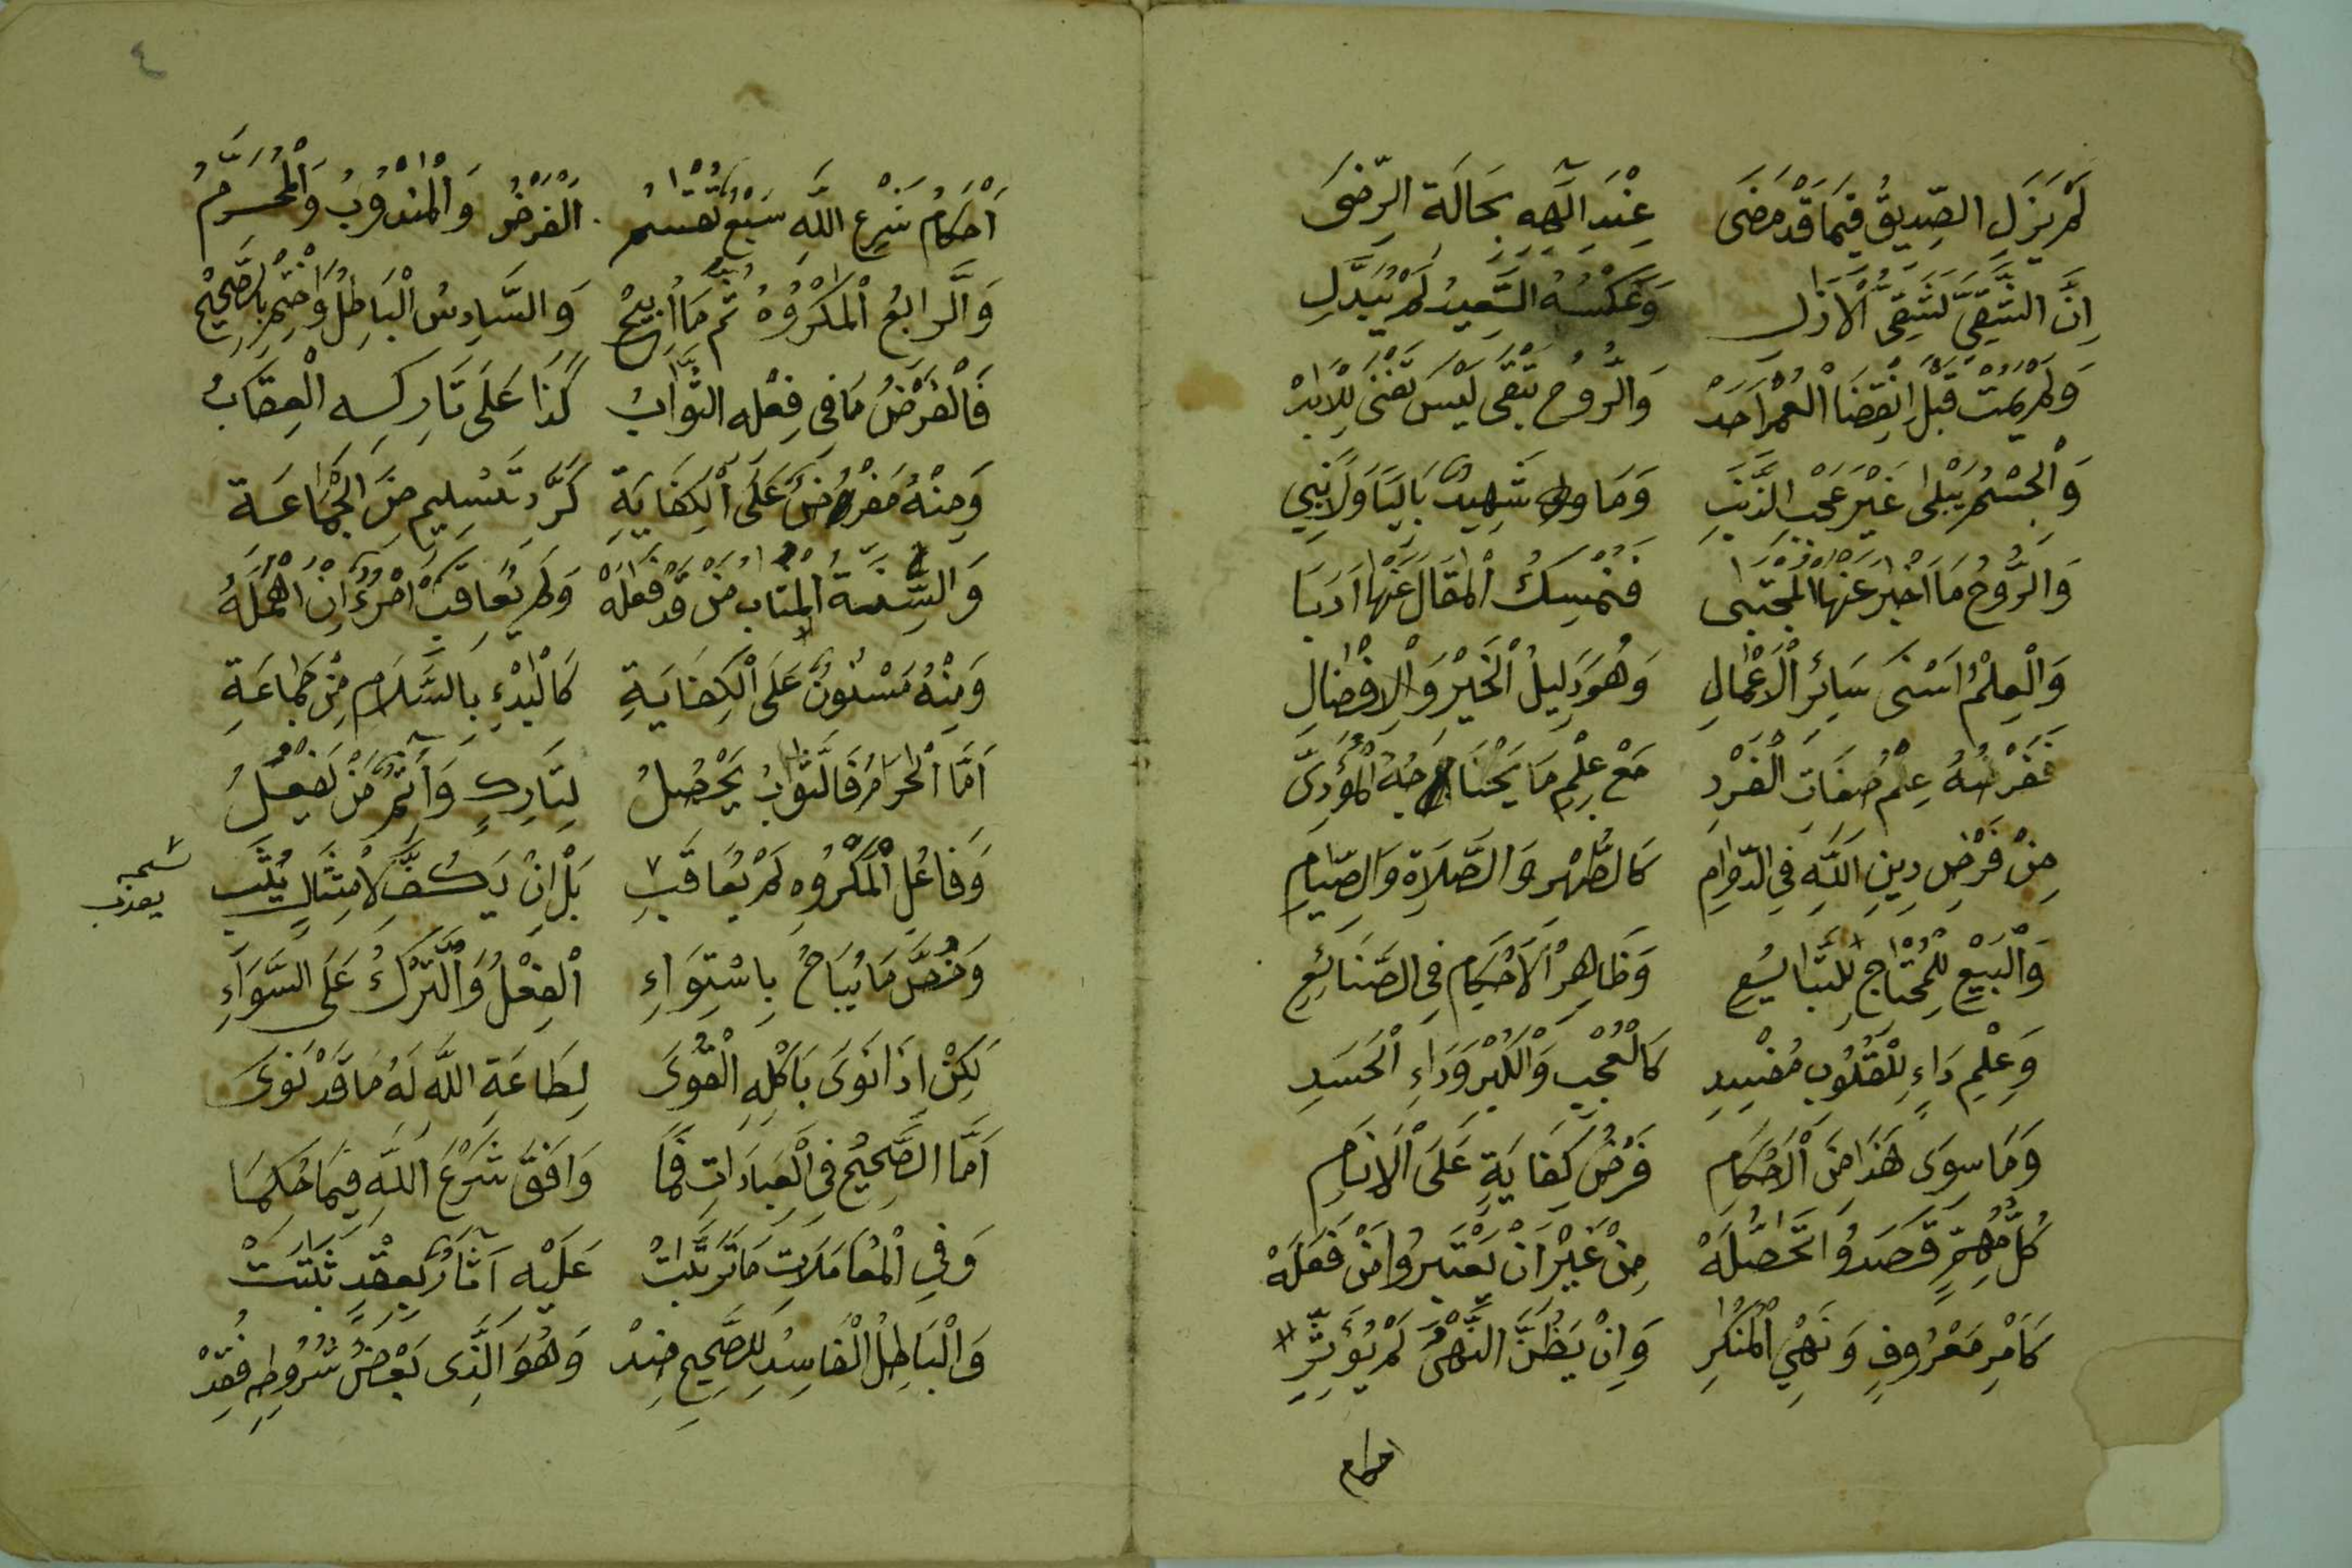 لَمْ يَزَلِ الصِّدِيقُ فِيمَا قَدْ مَضَى عِنْدَ اِلَهِهِ بِحَالَةِ الرِّضَى
اِنَّ الشَّقِىَّ لَشَقِىُّ الْاَزَلِ وَعَكْسُهُ السَّعِيدُ لَمْ يُبَدَّلِ
وَلَمْ يَمُتْ قَبْلَ انْقِضَا الْعُمْرِ اَحَدْ وَالرُّوحُ تَبْقَى لَيْسَ تَفْنَى لِلْاَبَدْ
وَالْجِسْمُ يَبْلَى غَيْرَ عَجْبِ الذَّنَبِ وَمَا شَهِيدٌ بَالِيًا وَلَا نَبِي
وَالرُّوحُ مَا اَخْبَرَ عَنْهَا الْمُجْتَبَى فَنُمْسِكُ الْمَقَالَ عَنْهَا اَدَبَا
وَالْعِلْمُ اَسْنَى سَائِرِ الْاَعْمَالِ وَهُوَ دَلِيلُ الْخَيْرِ وَالْاِفْضَالِ
فَفَرْضُهُ عِلْمُ صِفَاتِ الْفَرْدِ مَعْ عِلْمِ مَا يَحْتَاجُهُ الْمُؤَدِّى
مِنْ فَرْضِ دِينِ اللهِ فِى الدَّوَامِ كَالطُّهْرِ وَالصَّلَاةِ وَالصِّيَامِ
وَالْبَيْعِ لِلْمُحْتَاجِ لِلتَّبَايُعِ وَظَاهِرِ الْاَحْكَامِ فِى الصَّنَائِعِ
وَعِلْمِ دَاءٍ لِلْقُلُوبِ مُفْسِدِ كَالْعُجْبِ وَالْكِبْرِ وَدَاءِ الْحَسَدِ
وَمَا سِوَى هَذَا مِنَ الْاَحْكَامِ فَرْضُ كِفَايَةٍ عَلَى الْاَنَامِ
كُلُّ مُهِمٍّ قَصَدُوا تَحَصُّلَهْ مِنْ غَيْرِ اَنْ يَعْتَبِرُوا مَنْ فَعَلَهْ
كَاَمْرِ مَعْرُوفٍ وَنَهْىِ الْمُنْكَرِ وَاِنْ يَظُنَّ النَّهْىَ لَمْ يُؤَثِّرِ
احكام
٤
اَحْكَامُ شَرْعِ اللهِ سَبْعٌ تُقْسَمُ اَلْفَرْضُ وَالْمَنْدُوبُ وَالْمُحَرَّمُ
وَالرَّابِعُ الْمَكْرُوهُ ثُمَّ مَا اُبِيحْ وَالسَّادِسُ الْبَاطِلُ وَاخْتِمْ بِالصَّحِيحْ
فَالْفَرْضُ مَا فِى فِعْلِهِ الثَّوَابُ كَذَا عَلَى تَارِكِهِ الْعِقَابُ
وَمِنْهُ مَفْرُوضٌ عَلَى الْكِفَايَةِ كَرَدِّ تَسْلِيمٍ مِنَ الْجَمَاعَةِ
وَالسُّنَّةُ الْمُثَابُ مَنْ قَدْ فَعَلَهْ وَلَمْ يُعَاقَبِ امْرُؤٌ اِنْ اَهْمَلَهْ
وَمِنْهُ مَسْنُونٌ عَلَى الْكِفَايَةِ كَالْبَدْءِ بِالسَّلَامِ مِنْ جَمَاعَةِ
اَمَّا الْحَرَامُ فَالثَّوَابُ يَحْصُلُ لِتَارِكٍ وَآثِمٌ مَنْ يَفْعَلُ
وَفَاعِلُ الْمَكْرُوهِ لَمْ يُعَاقَبِ بَلْ اِنْ يَكُفَّ لِامْتِثَالٍ يُثَبِ
يعذب
وَخُصَّ مَا يُبَاحُ بِاسْتِوَاءِ الْفِعْلُ وَالتَّرْكُ عَلَى السَّوَاءِ
لَكِنْ اِذَا نَوَى بِاَكْلِهِ الْقُوَى لِطَاعَةِ اللهِ لَهُ مَا قَدْ نَوَى
اَمَّا الصَّحِيحُ فِى الْعِبَادَاتِ فَمَا وَافَقَ شَرْعَ اللهِ فِيمَا حَكَمَا
وَفِى الْمُعَامَلَاتِ مَا تَرَتَّبَتْ عَلَيْهِ آثَارٌ بِعَقْدٍ ثَبَتَتْ
وَالْبَاطِلُ الْفَاسِدُ لِلصَّحِيحِ ضِدْ وَهُوَ الَّذِى بَعْضُ شُرُوطِهِ فُقِدْ